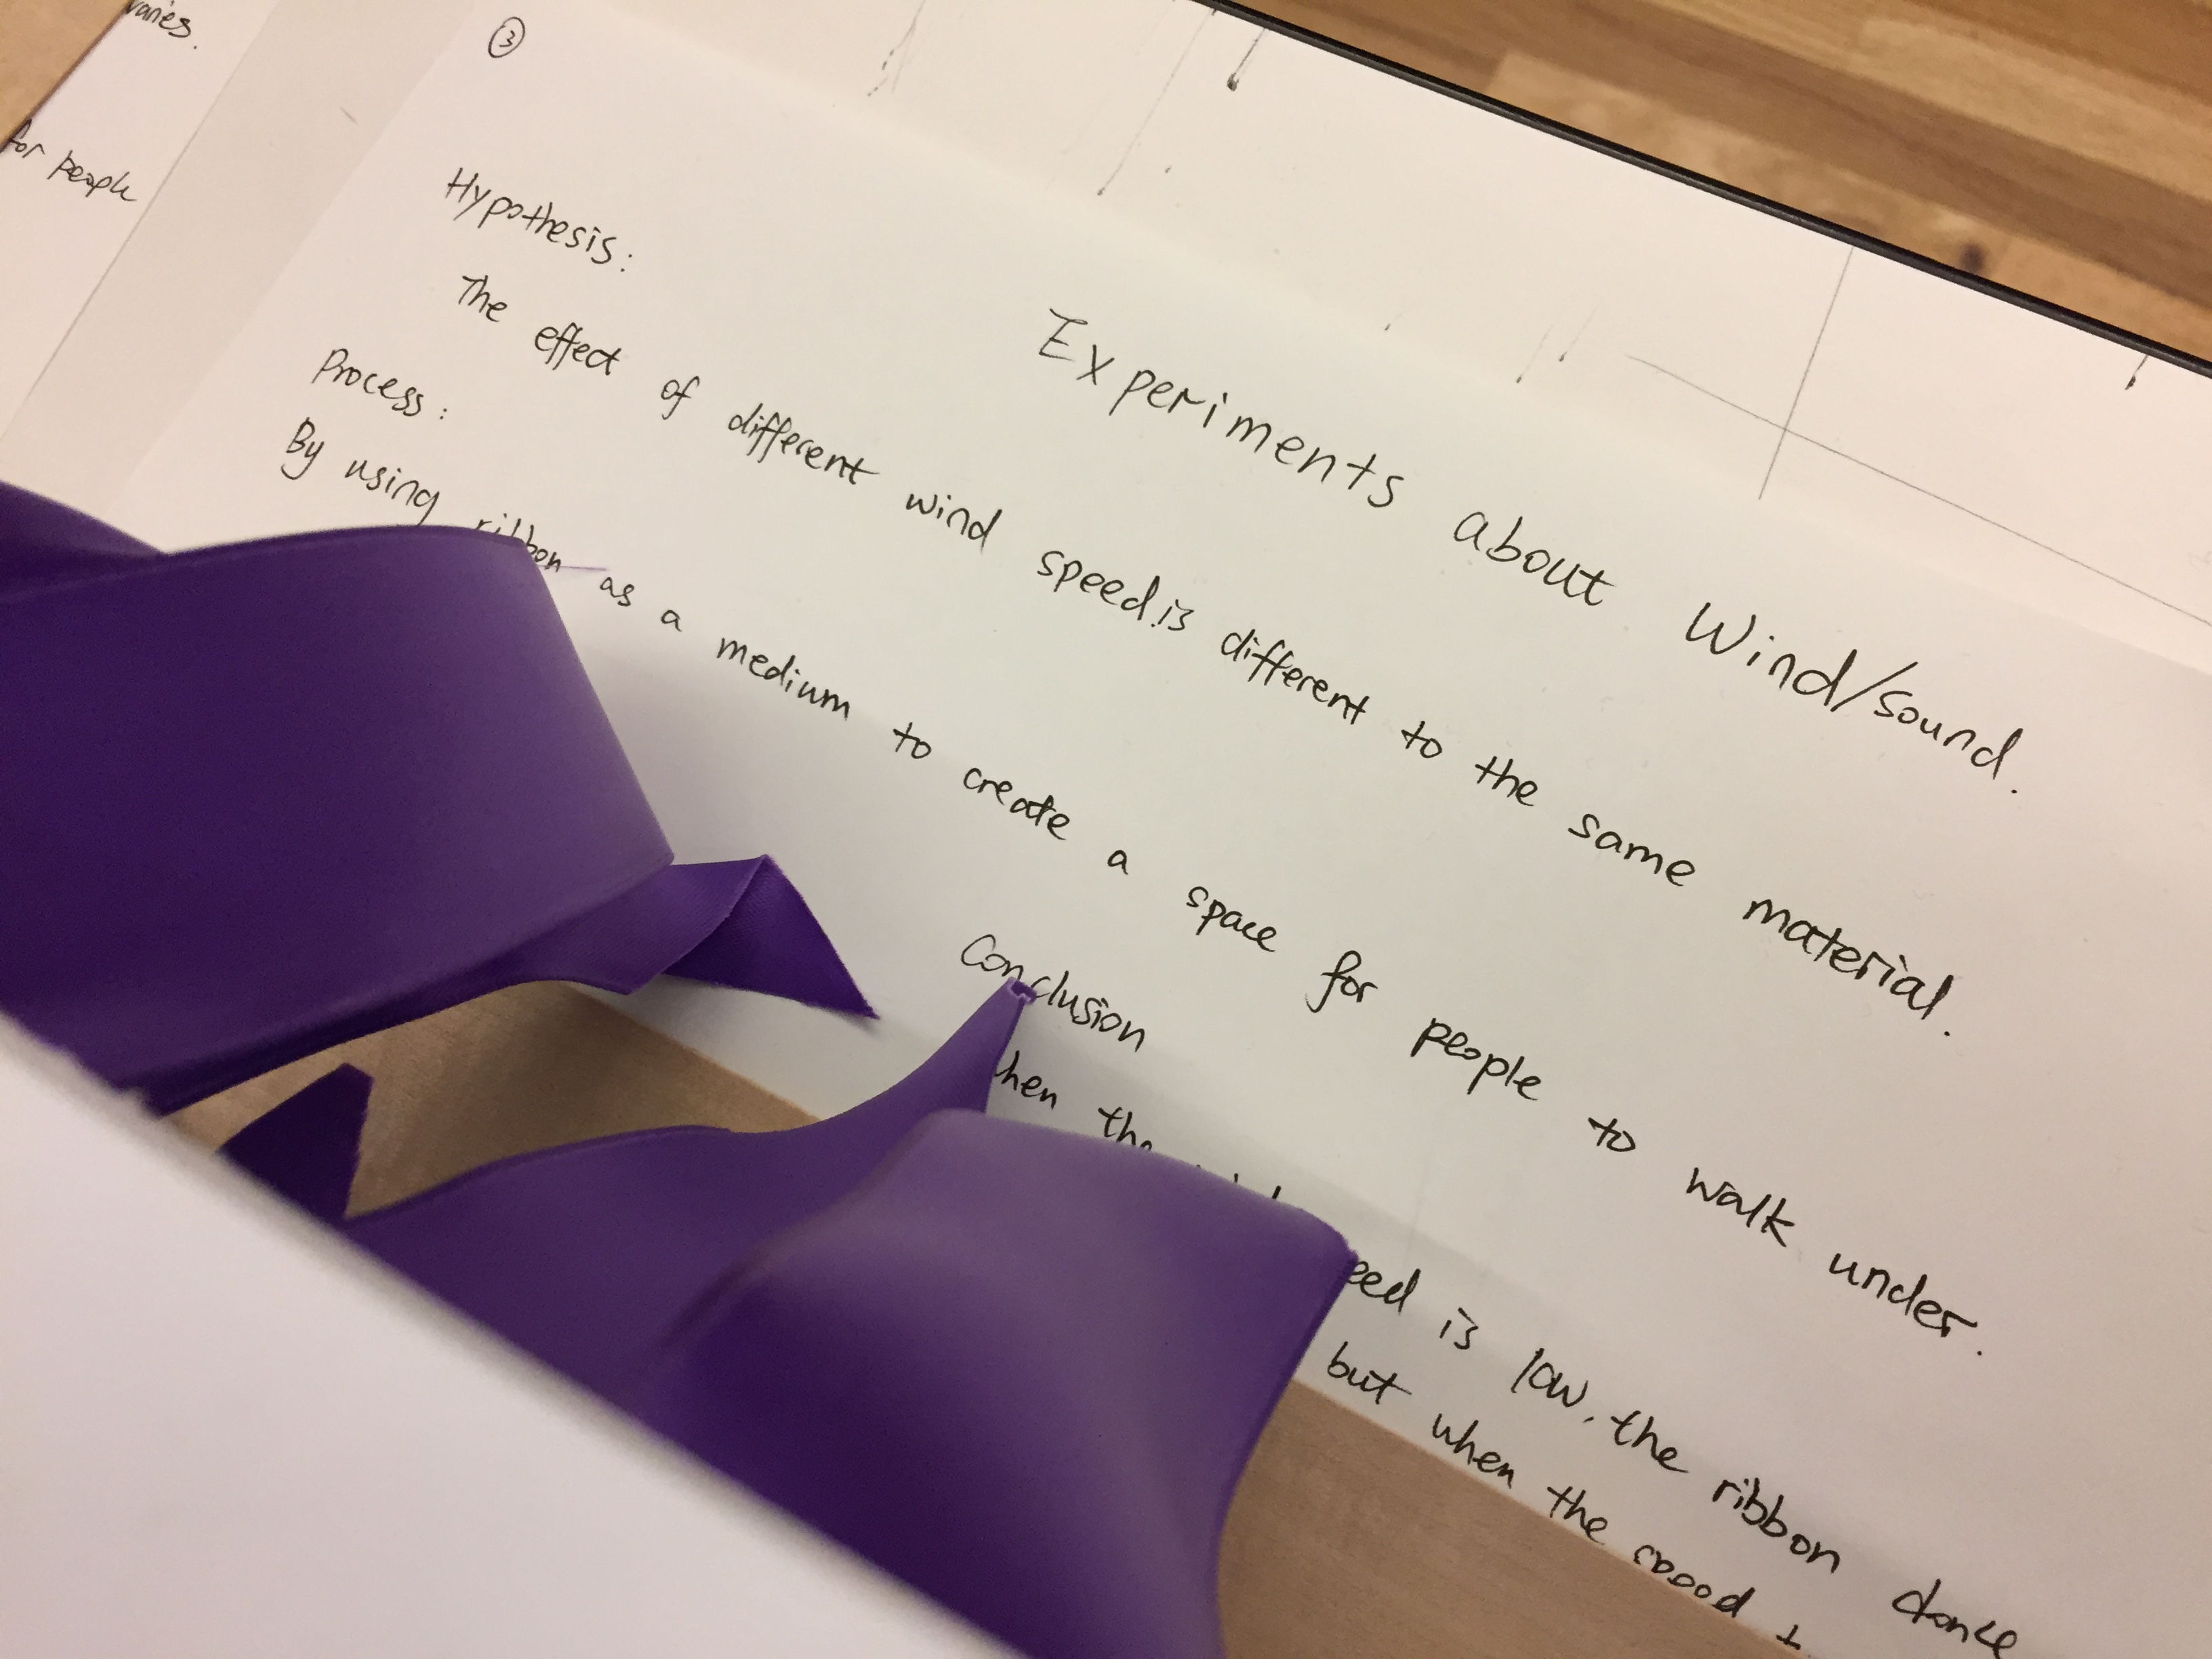 varies.
for people
③
Experiments about Wind/sound.
Hypothesis:
The effect of different wind speed is different to the same material.
Process:
By using ribbon as a medium to create a space for people to walk under.
Conclusion
is low, the ribbon dance
but when the